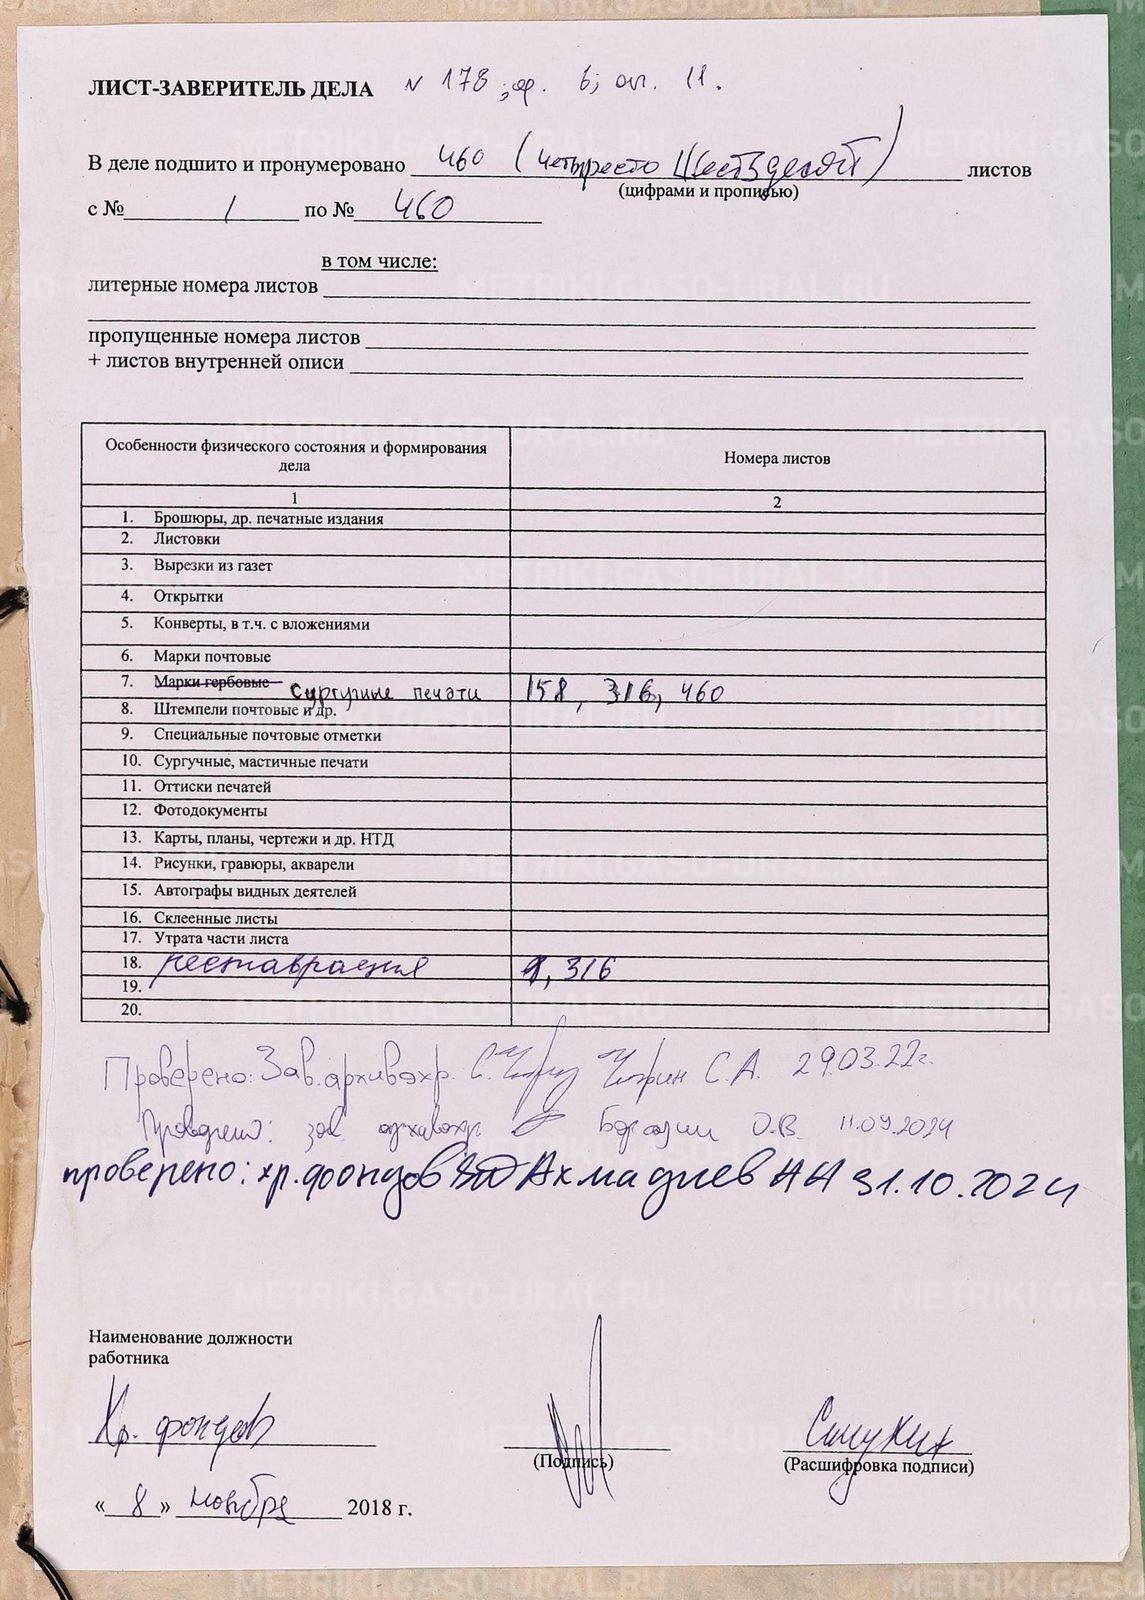 ЛИСТ-ЗАВЕРИТЕЛЬ ДЕЛА № 178; ф. 6; оп. 11.
В деле подшито и пронумеровано 460 (четыреста шестьдесят) листов
(цифрами и прописью)
с № 1 по № 460
в том числе:
литерные номера листов
пропущенные номера листов
+ листов внутренней описи
Особенности физического состояния и формирования дела Номера листов
1 2
1. Брошюры, др. печатные издания
2. Листовки
3. Вырезки из газет
4. Открытки
5. Конверты, в т.ч. с вложениями
6. Марки почтовые
7. Марки гербовые Сургучные печати 158, 316, 460
8. Штемпели почтовые и др.
9. Специальные почтовые отметки
10. Сургучные, мастичные печати
11. Оттиски печатей
12. Фотодокументы
13. Карты, планы, чертежи и др. НТД
14. Рисунки, гравюры, акварели
15. Автографы видных деятелей
16. Склеенные листы
17. Утрата части листа
18. реставрация 1, 316
19.
20.
Проверено: Зав. архивохр. С.А. 29.03.22г.
Проверено: зав. архивохр. О.В. 11.09.2024
проверено: хр. фондов Ахмадиев АН 31.10.2024
Наименование должности
работника
Хр. фондов
(Подпись) (Расшифровка подписи)
« 8 » ноября 2018 г.
METRIKI.GASO-URAL.RU